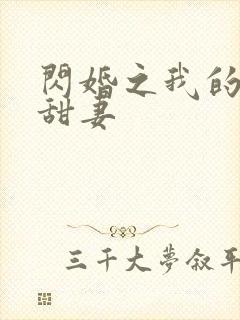 閃婚之我的
甜妻
三千大夢叙平